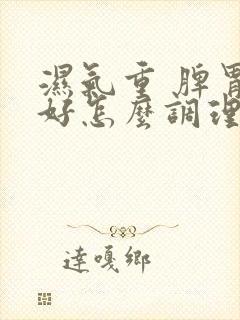 濕氣重 脾胃
好怎麼調理
達嘎鄉